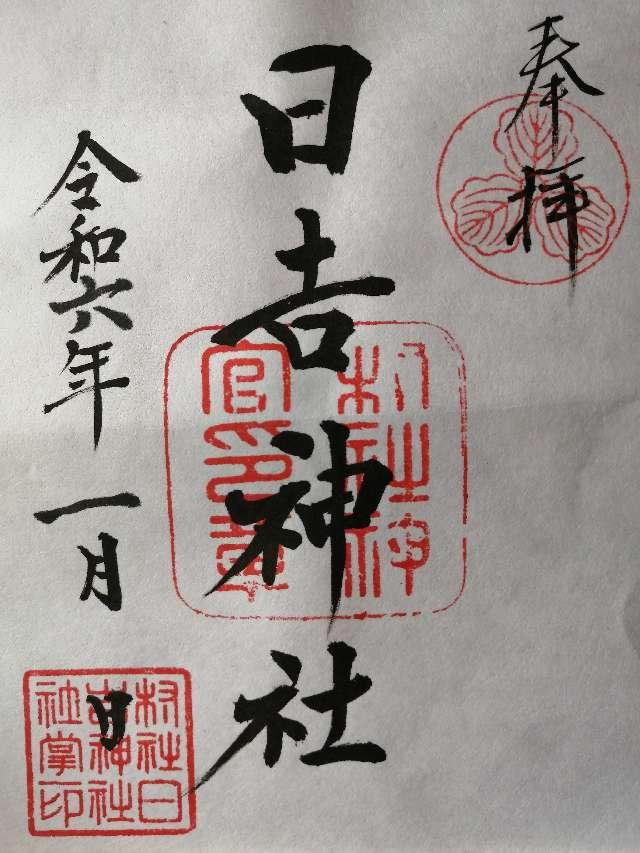 奉拝
日吉神社
令和六年一月 日
村社日
吉神社
社掌印